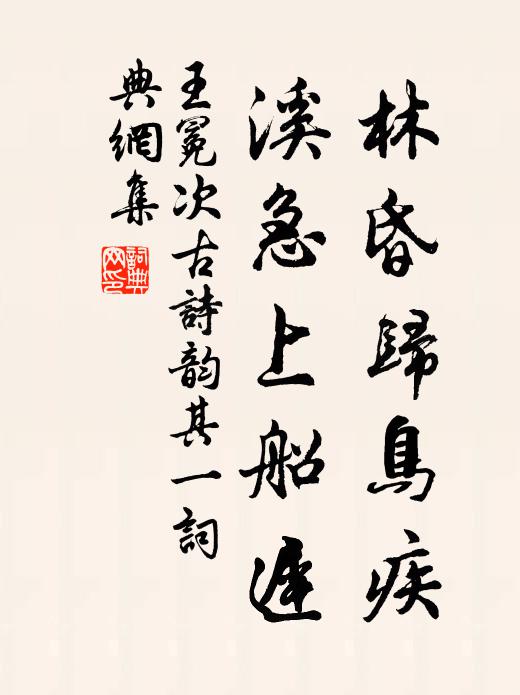 林昏歸鳥疾
溪急上船遲
王冕次古詩韵其一詞
典網集
詞典網印